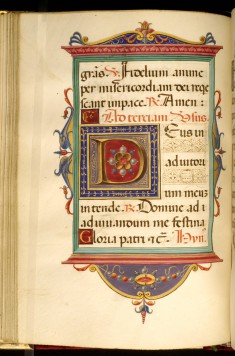 gr̃as. ℣. Fidelium anime
per misericordiam dei reqe
scant in pace. ℟. Amen:
Ad tertiam Vsus.
Deus in
adiutori
um meuz
intende. ℟. Domine ad i
adiuuandum me festina
Gloria patri et c̃. Hyn.